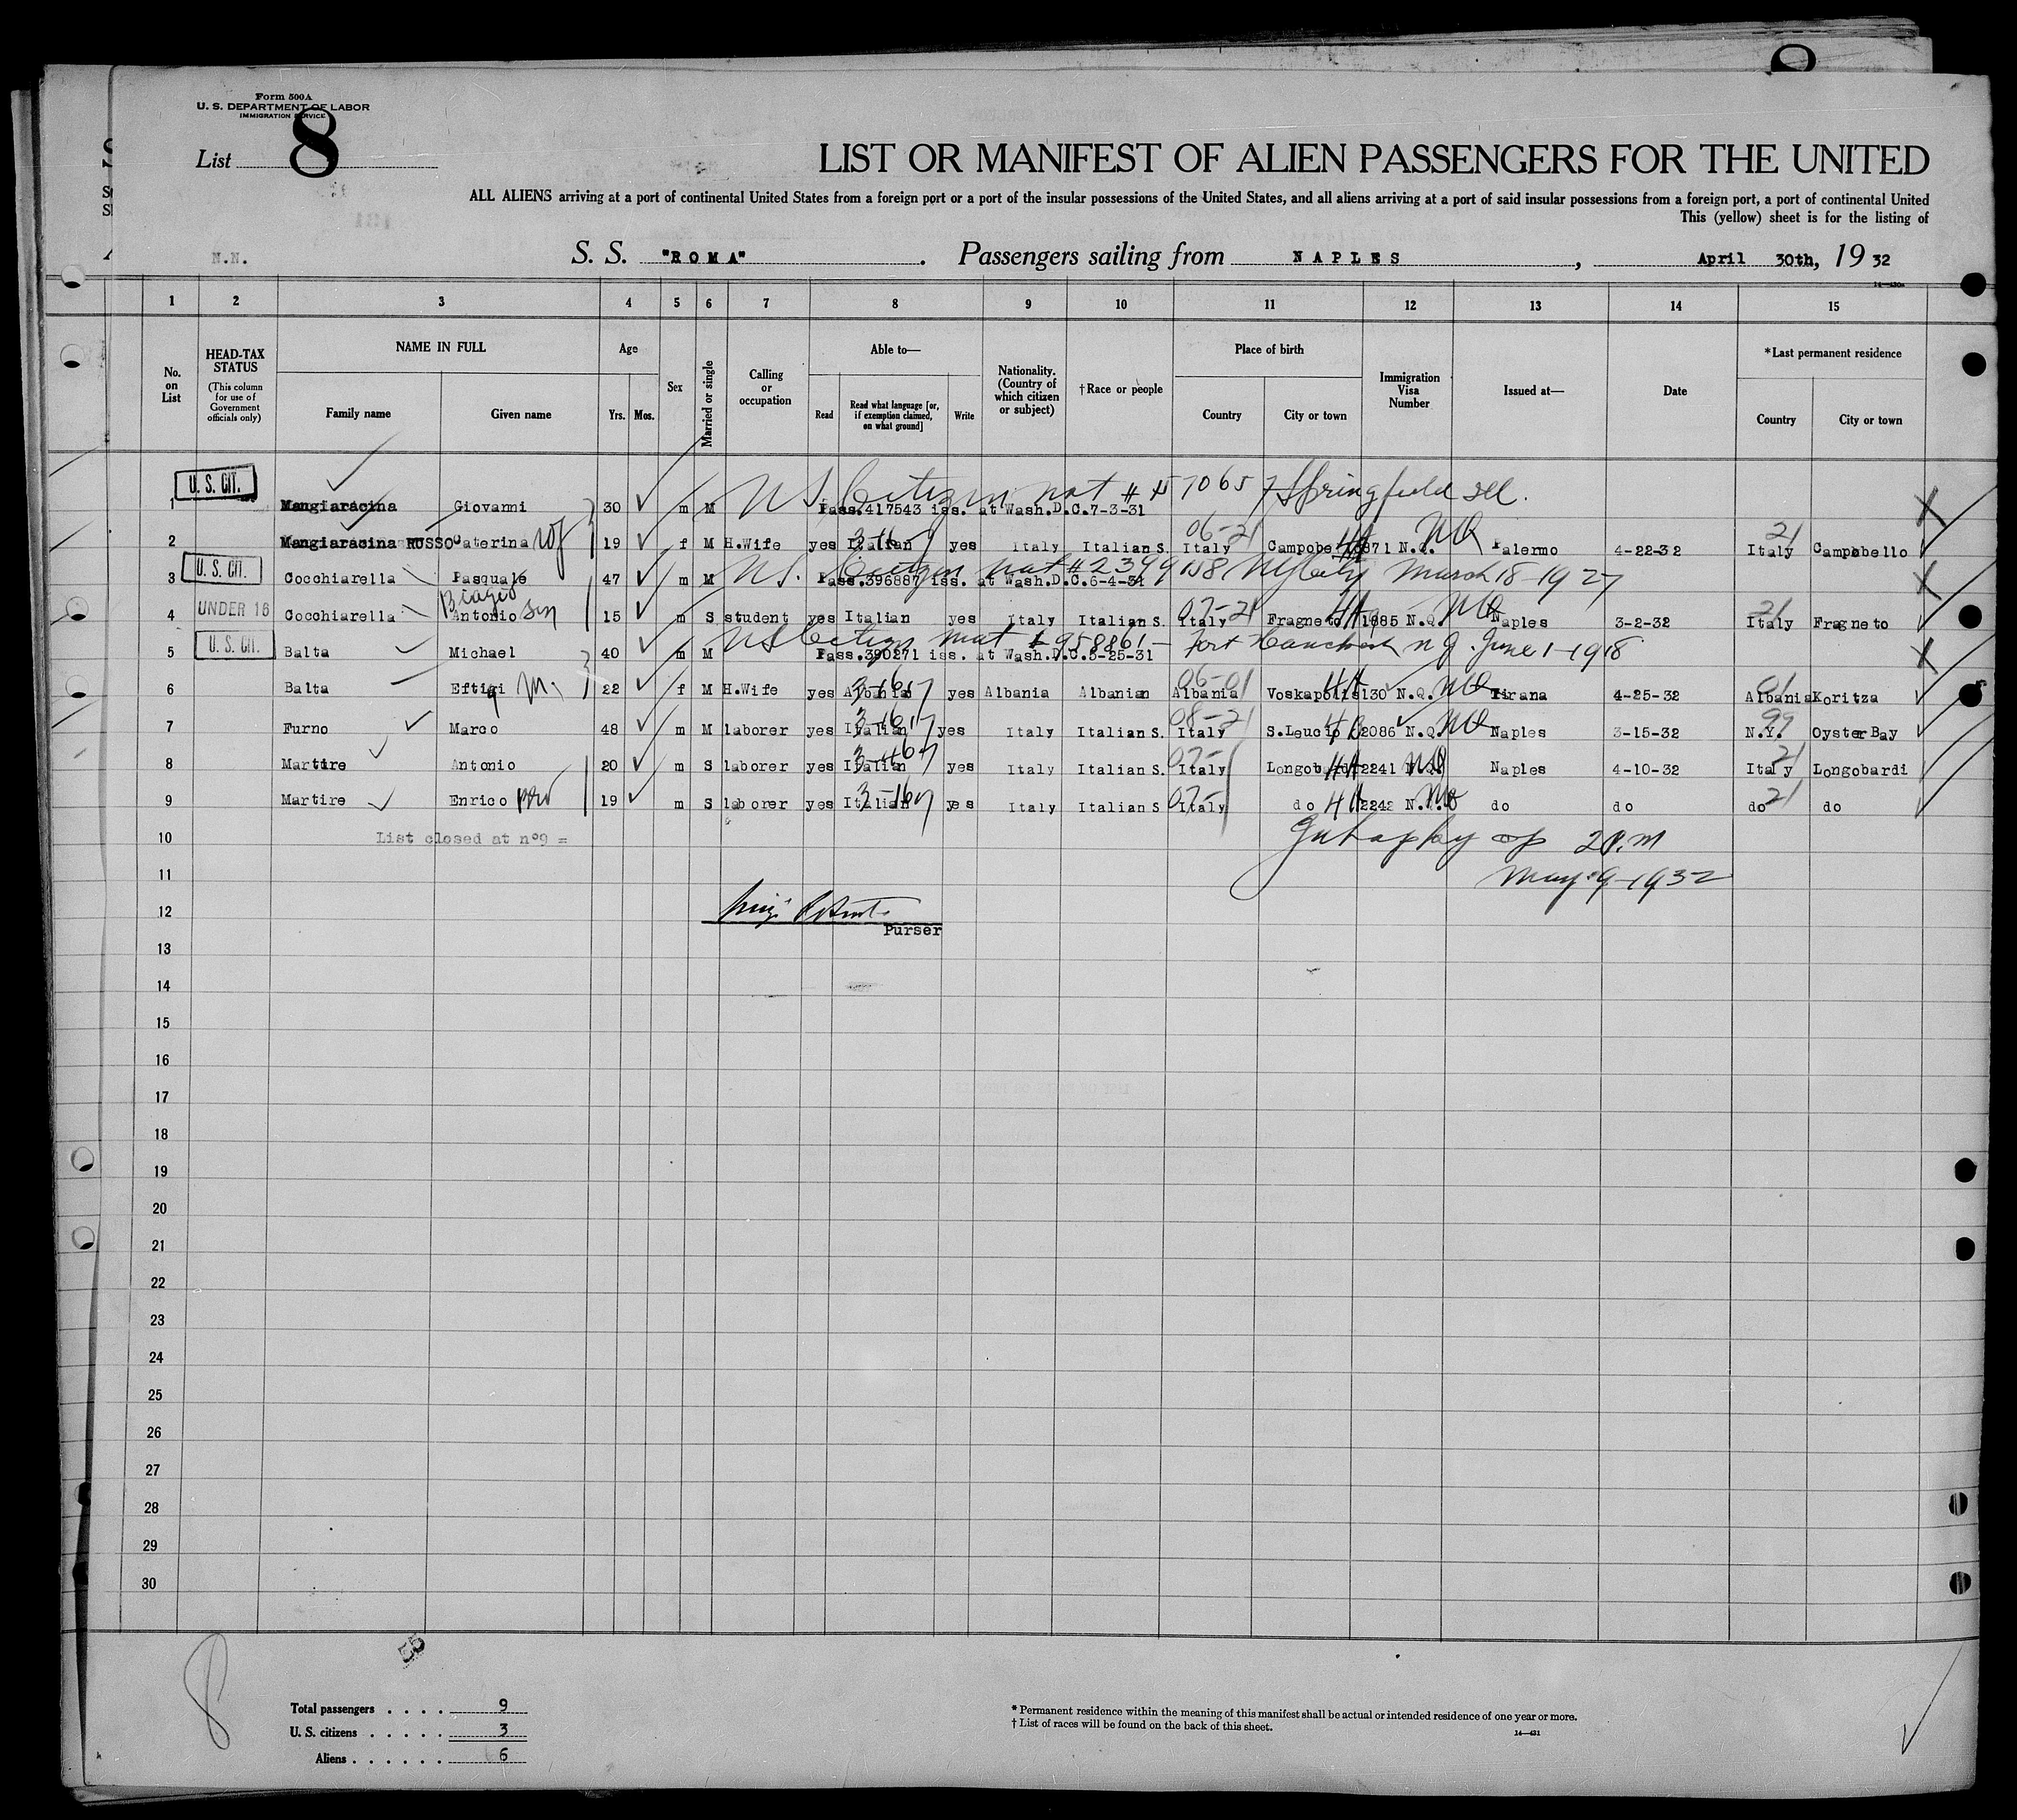 8
Form 500A
U. S. DEPARTMENT OF LABOR
IMMIGRATION SERVICE
List 8
LIST OR MANIFEST OF ALIEN PASSENGERS FOR THE UNITED
ALL ALIENS arriving at a port of continental United States from a foreign port or a port of the insular possessions of the United States, and all aliens arriving at a port of said insular possessions from a foreign port, a port of continental United
This (yellow) sheet is for the listing of
N.N. S. S. "ROMA" . Passengers sailing from NAPLES , April 30th, 19 32
1 2 3 4 5 6 7 8 9 10 11 12 13 14 15
No. on List
HEAD-TAX STATUS (This column for use of Government officials only)
NAME IN FULL
Family name Given name
Age
Yrs. Mos.
Sex
Married or single
Calling or occupation
Able to—
Read Read what language [or, if exemption claimed, on what ground] Write
Nationality. (Country of which citizen or subject)
†Race or people
Place of birth
Country City or town
Immigration Visa Number
Issued at—
Date
*Last permanent residence
Country City or town
U. S. CIT. US Citizen nat # Springfield Ill.
1 Mangiaracina Giovanni 30 m M Pass.417543 iss. at Wash.D.C.7-3-31
06-21 21
2 Mangiaracina RUSSO Caterina 19 f M H.Wife yes Italian yes Italy Italian S. Italy N.Q. Palermo 4-22-32 Italy Campobello
U. S. CIT. US. Citizen nat # NY City March 18-1927
3 Cocchiarella Pasquale 47 m M Pass.396887 iss. at Wash.D.C.6-4-31
Biagio
UNDER 16 07-21 21
4 Cocchiarella Antonio son 15 m S student yes Italian yes Italy Italian S. Italy Fragneto 1685 N.Q. Naples 3-2-32 Italy Fragneto
U. S. CIT. US Citizen nat June 1-1918
5 Balta Michael 40 m M Pass.390271 iss. at Wash.D.C.5-25-31
06-01 01
6 Balta 22 f M H.Wife yes Albanian yes Albania Albanian Albania Voskapolis 130 N.Q. Tirana 4-25-32 Albania Koritza
08-21 99
7 Furno Marco 48 m M laborer yes Italian yes Italy Italian S. Italy S.Leucio 2086 N.Q. Naples 3-15-32 N.Y. Oyster Bay
21
8 Martire Antonio 20 m S laborer yes Italian yes Italy Italian S. Italy 2241 N.Q. Naples 4-10-32 Italy Longobardi
21
9 Martire Enrico bro 19 m S laborer yes Italian yes Italy Italian S. Italy do 2242 N.Q. do do do do
10 List closed at n°9 =
2 P.M
11 May 9-1932
12
Purser
13
14
15
16
17
18
19
20
21
22
23
24
25
26
27
28
29
30
8
Total passengers . . . . 9
U. S. citizens . . . . . 3
Aliens . . . . . . 6
* Permanent residence within the meaning of this manifest shall be actual or intended residence of one year or more.
† List of races will be found on the back of this sheet.
14—431